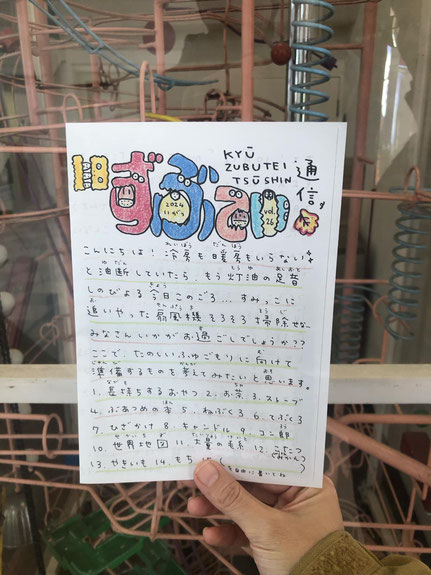 KYŪ
ZUBUTEI
TSŪSHIN
通信
ずぶ亭
2024
いがらゥ
vol.
26
こんにちは！冷房も暖房もいらないな
と油断していたら、もう灯油の足音
しのびよる今日このごろ…すみっこに
追いやった扇風機そろそろ掃除せな…
みなさんいかがお過ごしでしょうか??
ここで、たのしいふゆごもりに向けて
準備するものを考えてみたいと思います。
1. 長持ちするおやつ 2. お茶 3. ストーブ
4. ぶあつめの本 5. ねぶくろ 6. てぶくろ
7. ひざかけ 8. キャンドル 9. コニ郎
10. 世界地図 11. 大量の毛糸 12. こたつ
(みかん)
13. やきいも 14. もち
を自由に書いてね